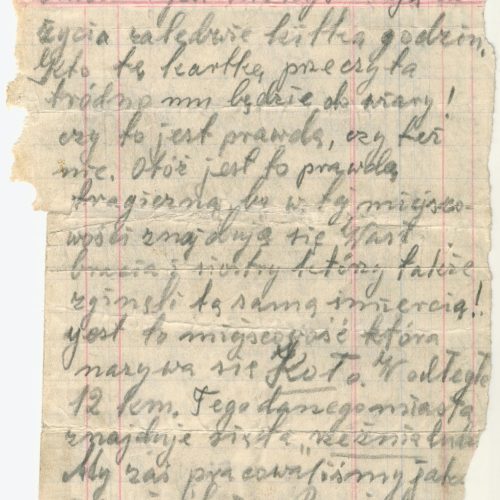 życia zaledwie kilka godzin.
Kto tę kartkę przeczyta
tródno mu będzie do wiary!
czy to jest prawdą, czy też
nie. Otóż jest to prawdą
tragiczną, bo w tej miejsco-
wości znajdują się Wasi
bracia i siostry którzy także
zginęli tą samą śmiercią!.
jest to miejscowość która
nazywa się Koło. W odległo
12 km. Tego danego miasta
znajduje się ta "rzeźnia
My zaś pracowaliśmy jako